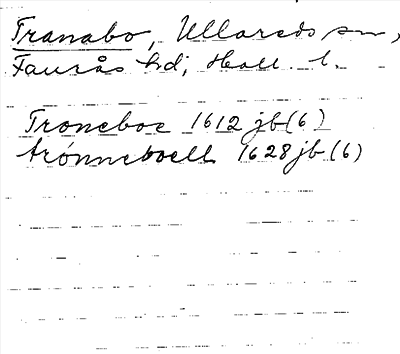 Tranabo, Ullareds sn,
Faurås hd, Hall. l.
Troneboe 1612 jb (6)
trónneboell 1628 jb (6)